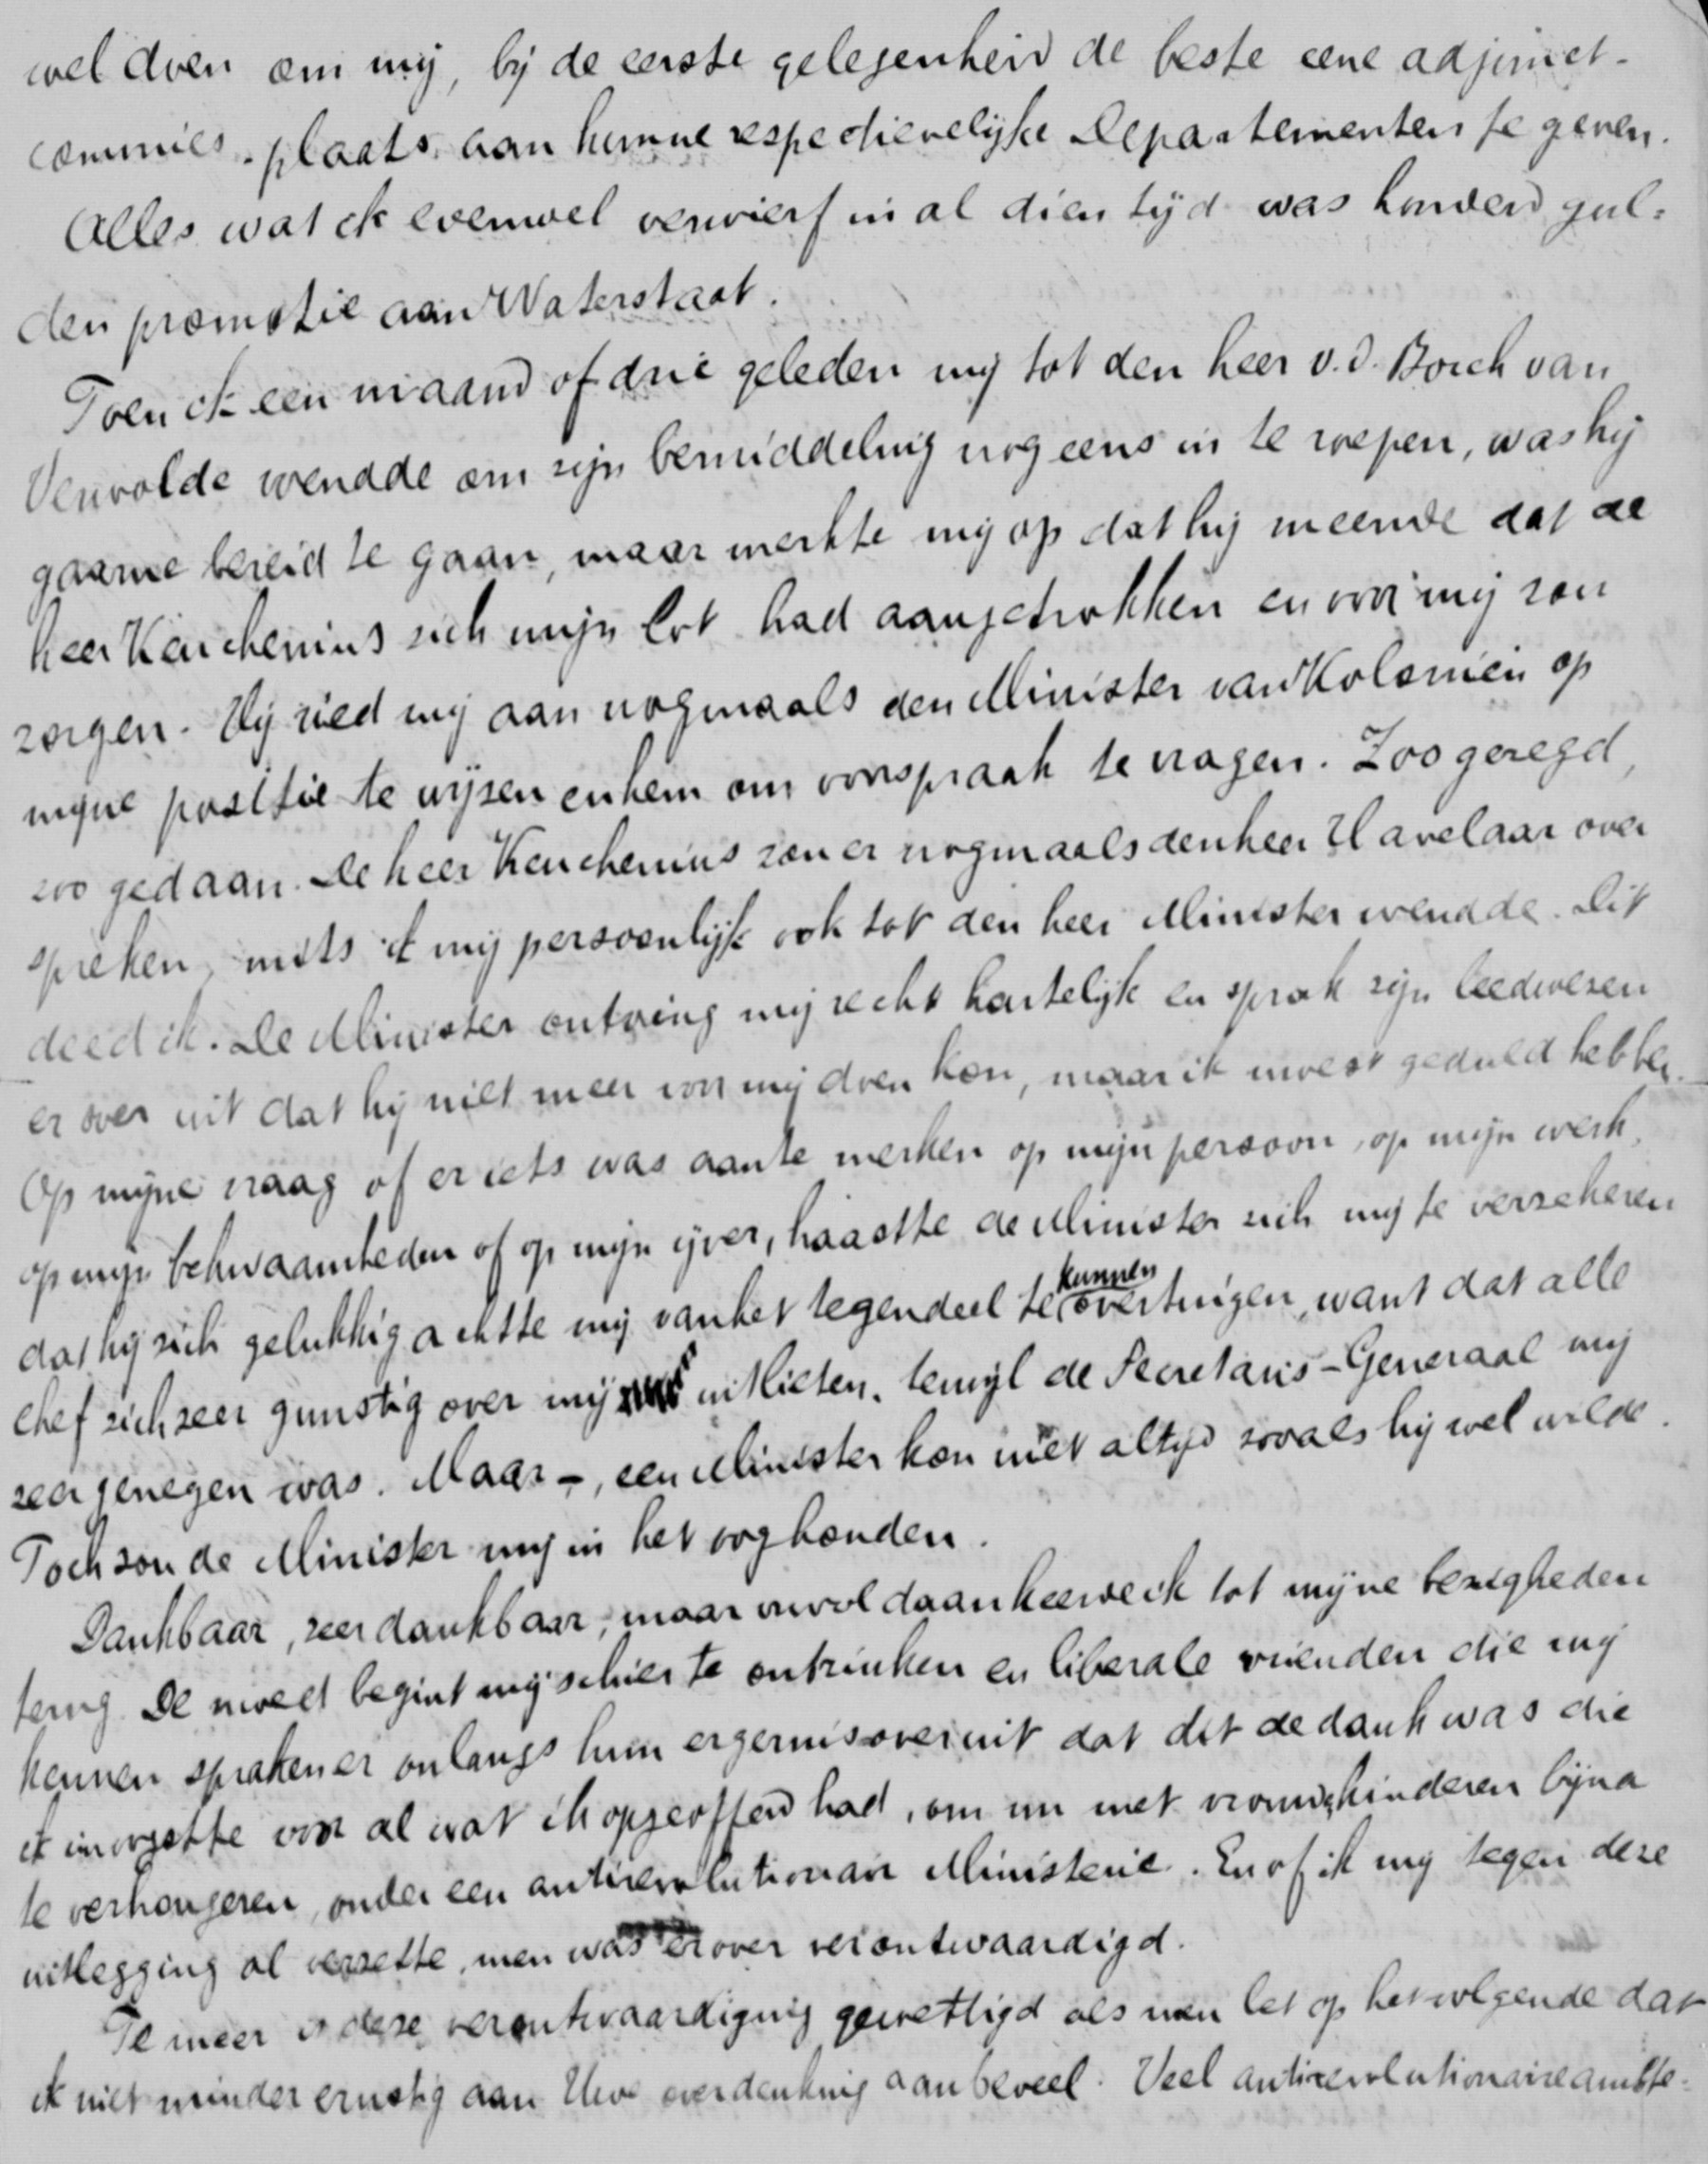 wel doen om mij, bij de eerste gelegenheid de beste eene adjunct-
commies-plaats aan hunne respectievelijke Departementen te geven.
Alles wat ik evenwel verwierf in al dien tijd was honderd gul-
den promotie aan Waterstaat.
Toen ik een maand of drie geleden mij tot den heer v.d. Borch van
Verwolde wendde om zijn bemiddeling nog eens in te roepen, was hij
gaarne bereid te gaan, maar merkte mij op dat hij meende dat de
heer Keuchenius zich mijn lot had aangetrokken en voor mij zou
zorgen. Hij ried mij aan nogmaals den Minister van Koloniën op
mijne positie te wijzen en hem om voorspraak te vragen. Zoo gezegd,
zoo gedaan. De heer Keuchenius zou er nogmaals den heer Havelaar over
spreken, mits ik mij persoonlijk ook tot den heer Minister wendde. Dit
deed ik. De Minister ontving mij recht hartelijk en sprak zijn leedwezen
er over uit dat hij niet meer voor mij doen kon, maar ik moest geduld hebben.
Op mijne vraag of er iets was aan te merken op mijn persoon, op mijn werk,
op mijn bekwaamheden of op mijn ijver, haastte de Minister zich mij te verzekeren
dat hij zich gelukkig achtte mij van het tegendeel te kunnen overtuigen, want dat alle
chef zich zeer gunstig over mij uitlieten, terwijl de Secretaris-Generaal mij
zeer genegen was. Maar -, een Minister kon niet altijd zooals hij wel wilde.
Toch zou de Minister mij in het oog houden.
Dankbaar, zeer dankbaar, maar onvoldaan keerde ik tot mijne bezigheden
terug. De moed begint mij schier te ontzinken en liberale vrienden die mij
kennen spraken er onlangs hun ergernis over uit dat dit de dank was die
ik inoogstte voor al wat ik opgeofferd had, om nu met vrouw & kinderen bijna
te verhongeren, onder een antirevolutionair Ministerie. En of ik mij tegen deze
uitlegging al verzette, men was er over verontwaardigd.
Te meer is deze verontwaardiging gewettigd als men let op het volgende dat
ik niet minder ernstig aan Uwe overdenking aanbeveel. Veel antirevolutionaire ambte-